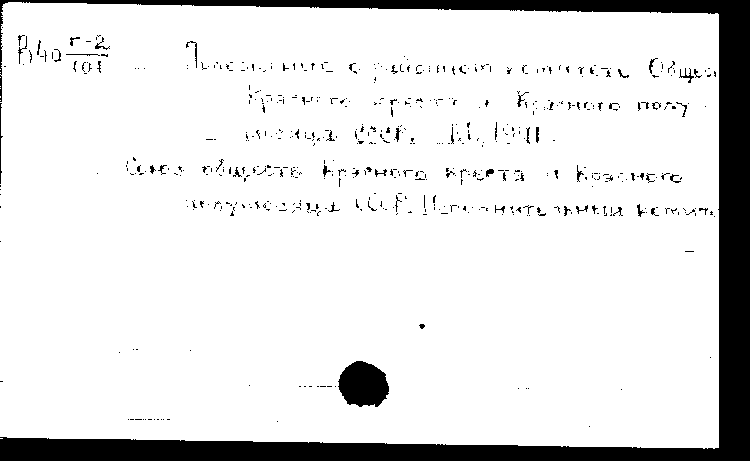 В40 г-2/101 Положение о районном комитете Общес
Красного креста и Красного полу-
месяца СССР. М., 1941.
Союз обществ Красного креста и Красного
полумесяца СССР. Исполнительный комите